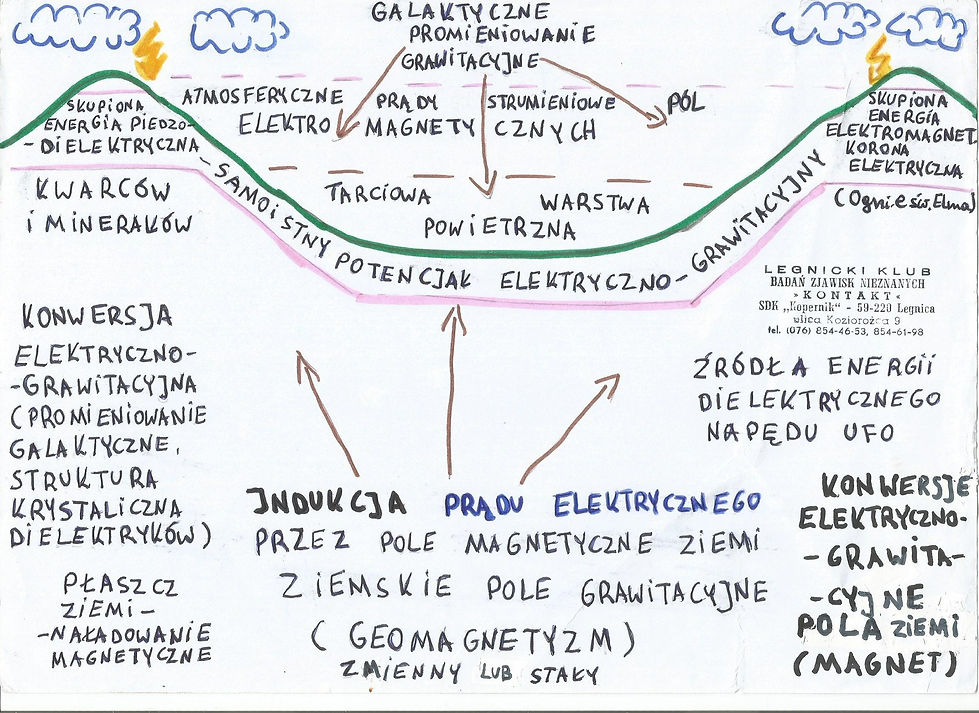 GALAKTYCZNE
PROMIENIOWANIE
GRAWITACYJNE
ATMOSFERYCZNE PRĄDY STRUMIENIOWE PÓL
ELEKTRO MAGNETY CZNYCH
SKUPIONA
ENERGIA PIEDZO-
-DIELEKTRYCZNA
KWARCÓW
i MINERAŁÓW
SKUPIONA
ENERGIA
ELEKTROMAGNET.
KORONA
ELEKTRYCZNA
(Ognie św. Elma)
TARCIOWA WARSTWA
POWIETRZNA
-SAMOISTNY POTENCJAŁ ELEKTRYCZNO-GRAWITACYJNY
LEGNICKI KLUB
BADAŃ ZJAWISK NIEZNANYCH
» KONTAKT «
SDK „Kopernik" - 59-220 Legnica
ulica Koziorożca 9
tel. (076) 854-46-53, 854-61-98
KONWERSJA
ELEKTRYCZNO-
-GRAWITACYJNA
(PROMIENIOWANIE
GALAKTYCZNE,
STRUKTURA
KRYSTALICZNA
DIELEKTRYKÓW)
ŹRÓDŁA ENERGII
DIELEKTRYCZNEGO
NAPĘDU UFO
INDUKCJA PRĄDU ELEKTRYCZNEGO
PRZEZ POLE MAGNETYCZNE ZIEMI
ZIEMSKIE POLE GRAWITACYJNE
(GEOMAGNETYZM)
ZMIENNY LUB STAŁY
PŁASZCZ
ZIEMI-
-NAŁADOWANIE
MAGNETYCZNE
KONWERSJE
ELEKTRYCZNO-
-GRAWITA-
-CYJNE
POLA ZIEMI
(MAGNET)